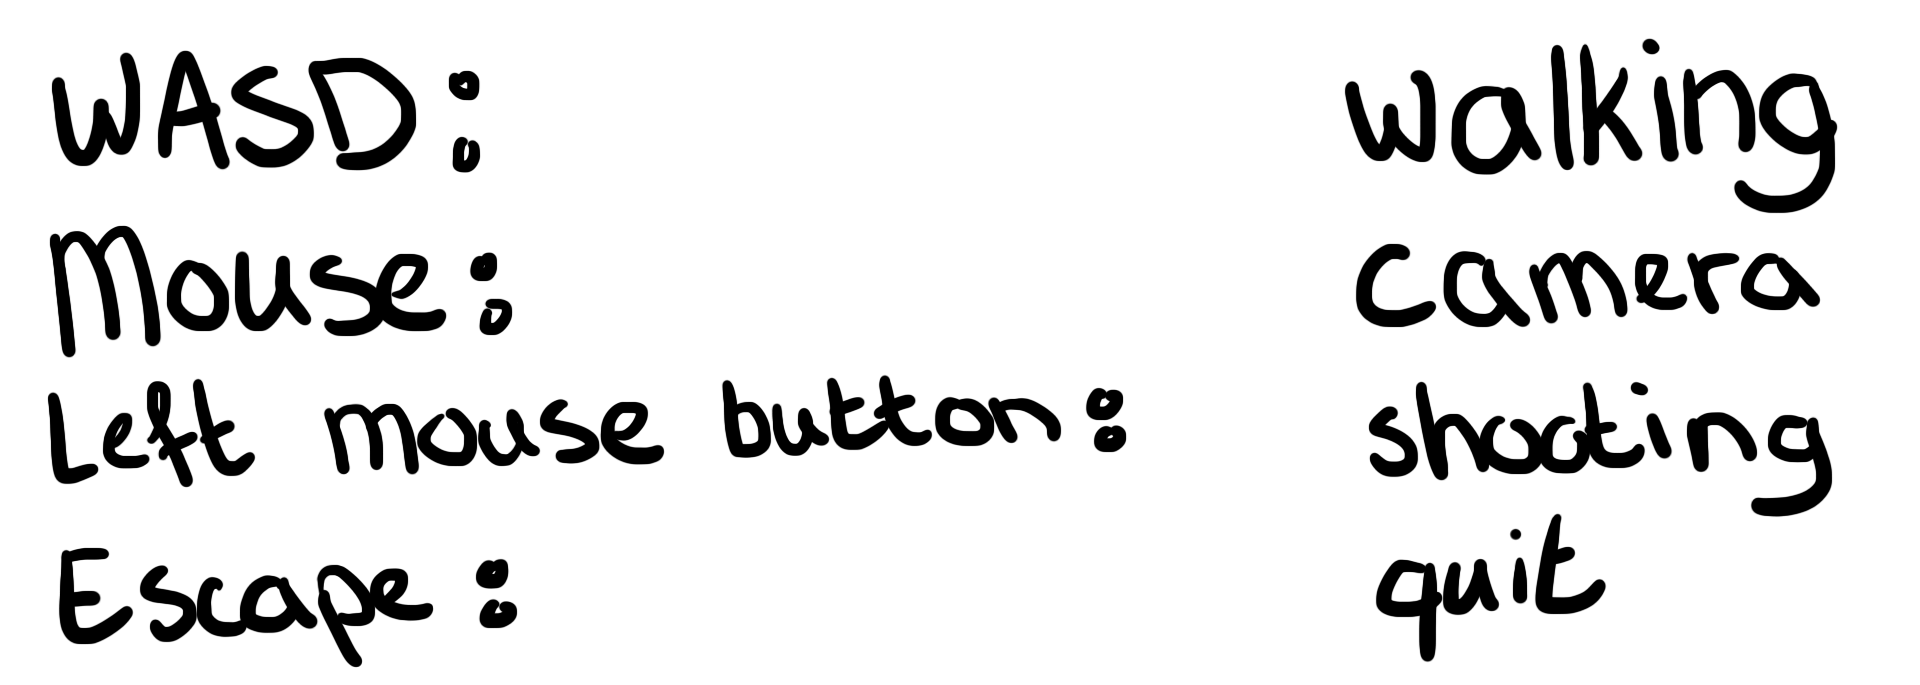 WASD: walking
Mouse: camera
Left mouse button: shooting
Escape: quit